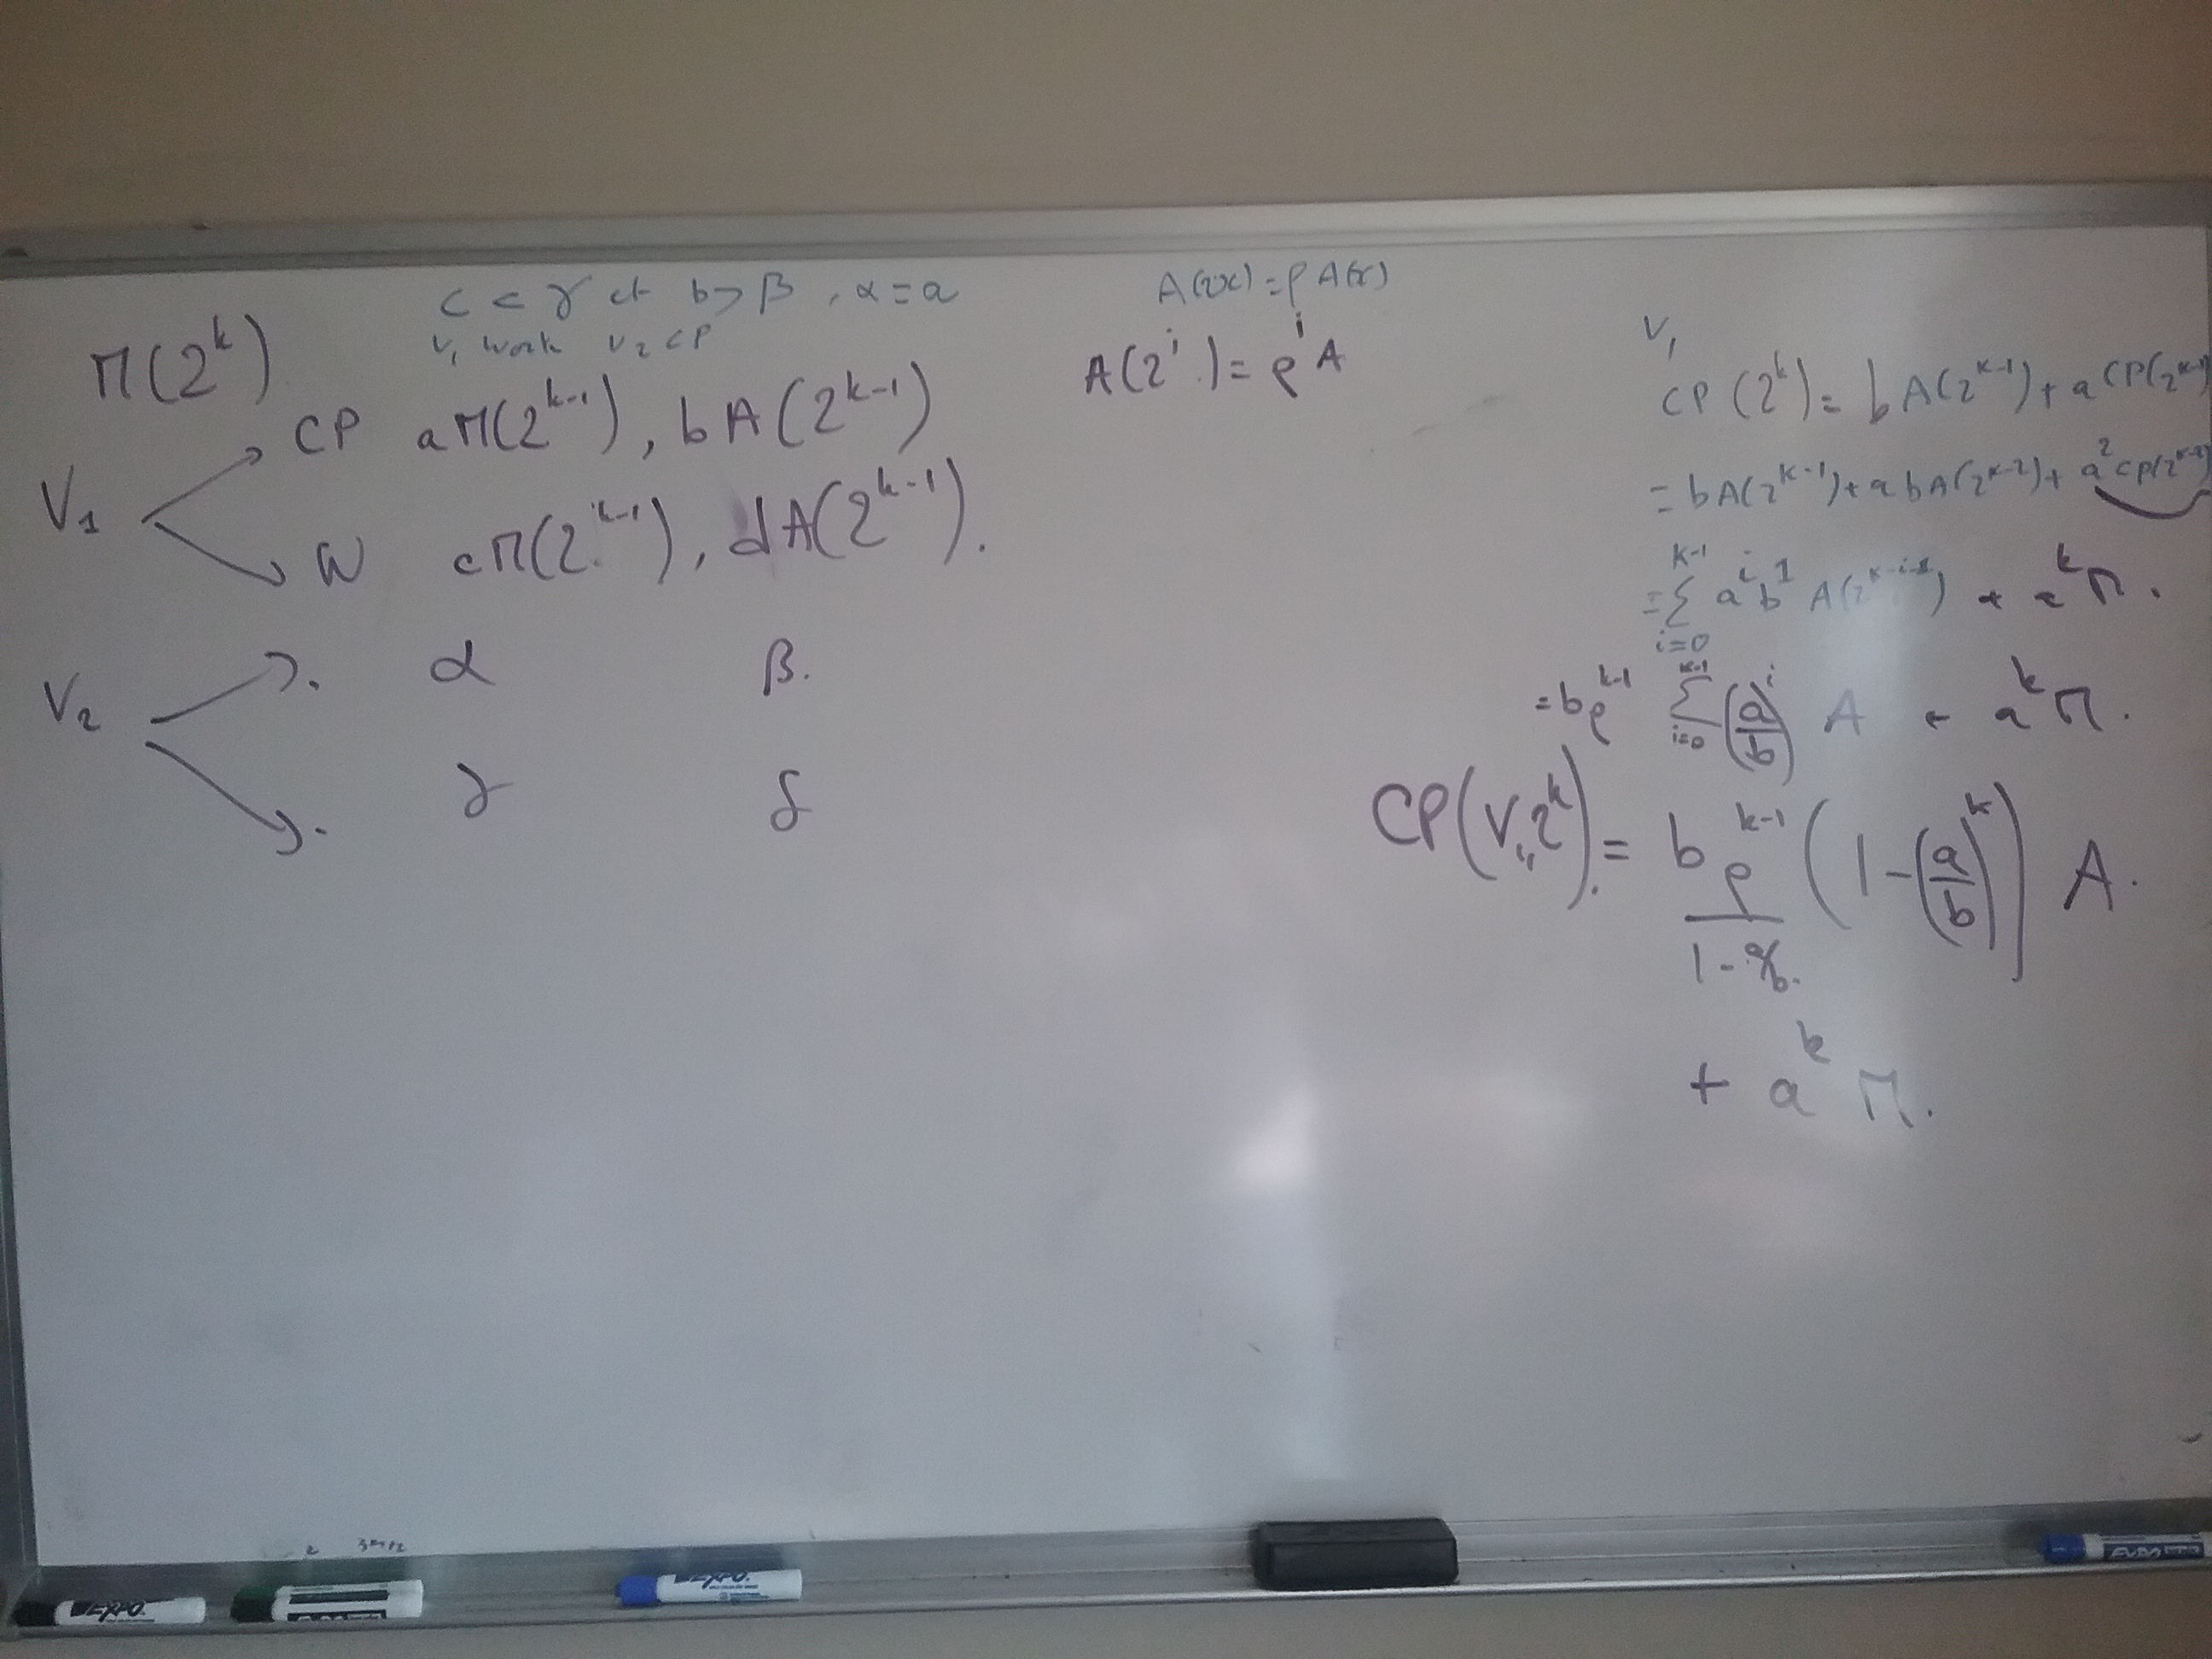 c < γ et b > β , α = a
V₁ work V₂ CP
Π(2^k)
V₁
CP aΠ(2^{k-1}), bA(2^{k-1})
W cΠ(2^{k-1}), dA(2^{k-1}).
V₂
α β.
γ δ
A(2x) = ρA(x)
A(2^i.) = ρ^i A
V₁
CP(2^k) = bA(2^{k-1}) + aCP(2^{k-1})
= bA(2^{k-1}) + abA(2^{k-2}) + a²CP(2^{k-2})
= Σ_{i=0}^{k-1} a^i b^1 A(2^{k-i-1}) + a^k Π.
= bρ^{k-1} Σ_{i=0}^{k-1} (a/b)^i A + a^k Π.
CP(V₁, 2^k) = bρ^{k-1}/(1-a/b) (1-(a/b)^k) A.
+ a^k Π.
EXPO
EXPO